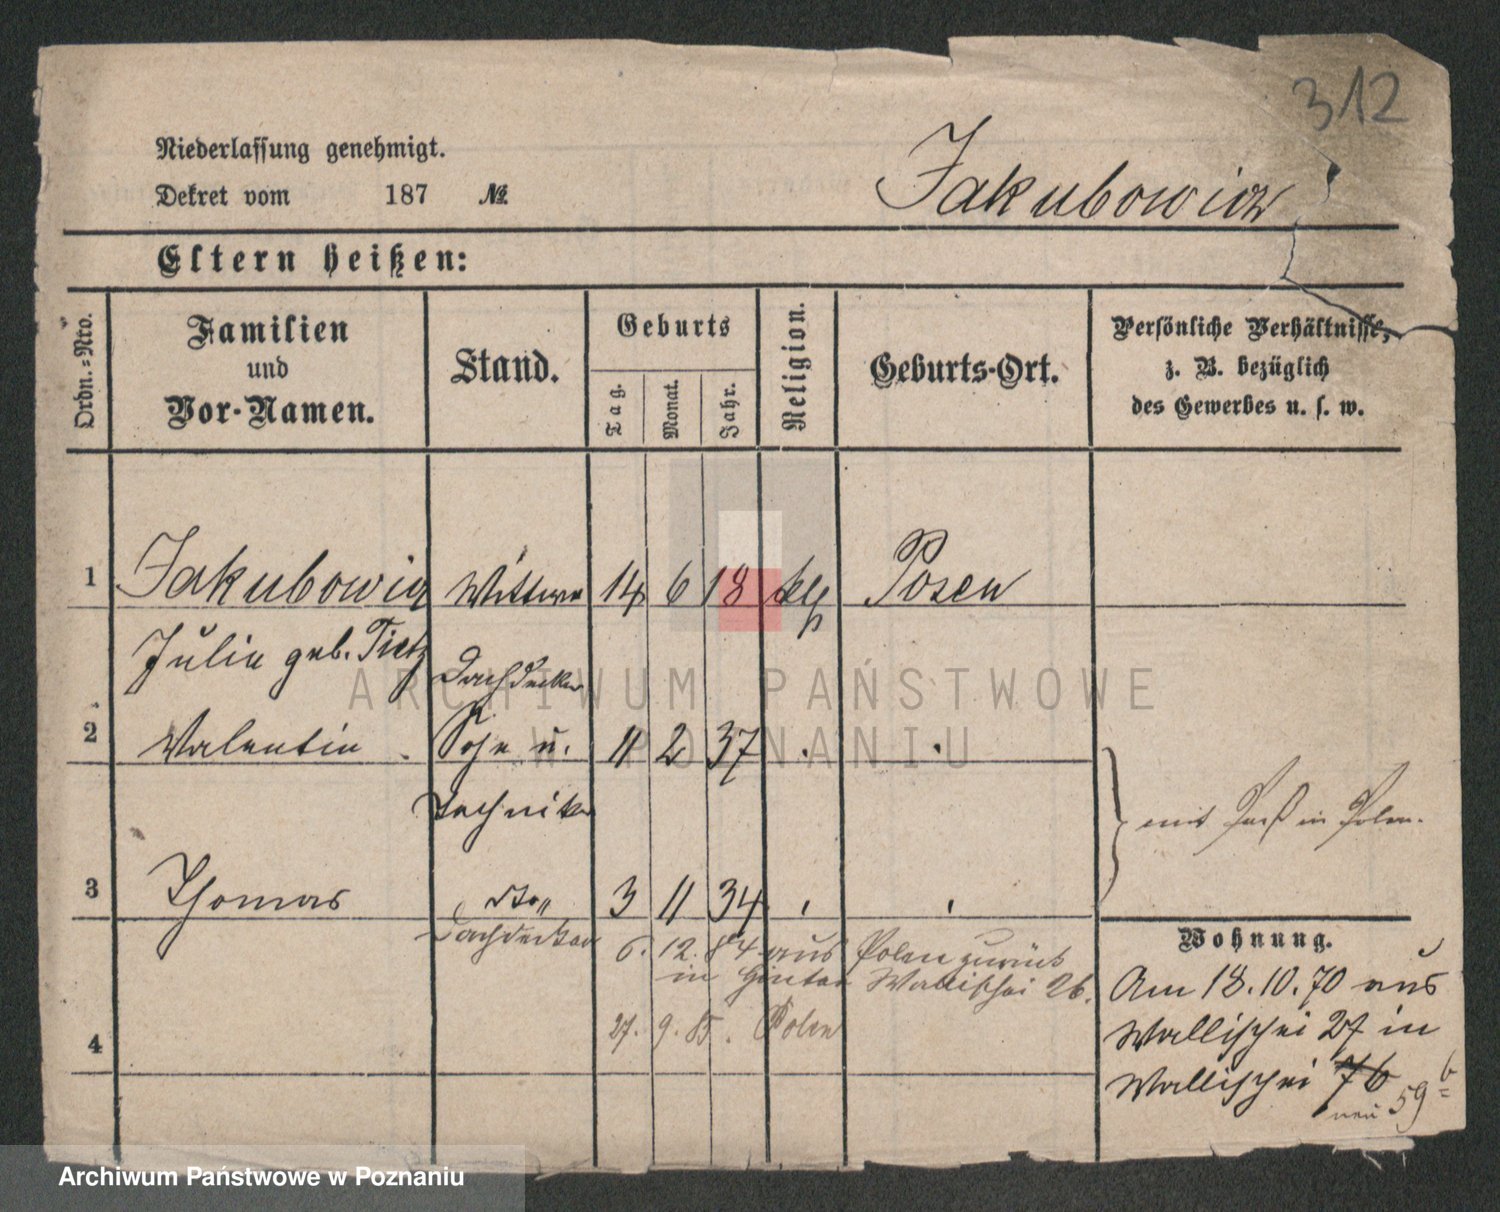 312
Niederlassung genehmigt.
Dekret vom 187 №
Jakubowicz
Eltern heißen:
Ordn.-Nro.
Familien
und
Vor-Namen.
Stand.
Geburts
Tag.
Monat.
Jahr.
Religion.
Geburts-Ort.
Persönliche Verhältnisse,
z. B. bezüglich
des Gewerbes u. s. w.
1 Jakubowicz Wittwe 14 6 18 Posen
Julie geb. Tietz
Dachdecker
2 Valentin Sohn u. 11 2 37
Techniker
mit Paß in Polen.
3 Thomas dto 3 11 34
Dachdecker 6. 12. 84 aus Polen zurück
in Hinter Wallischei 26.
27. 9. 85. Polen
4
Wohnung.
Am 18.10.70 aus
Wallischei 27 in
Wallischei 76
neu 59 b
ARCHIWUM PAŃSTWOWE
W POZNANIU
Archiwum Państwowe w Poznaniu